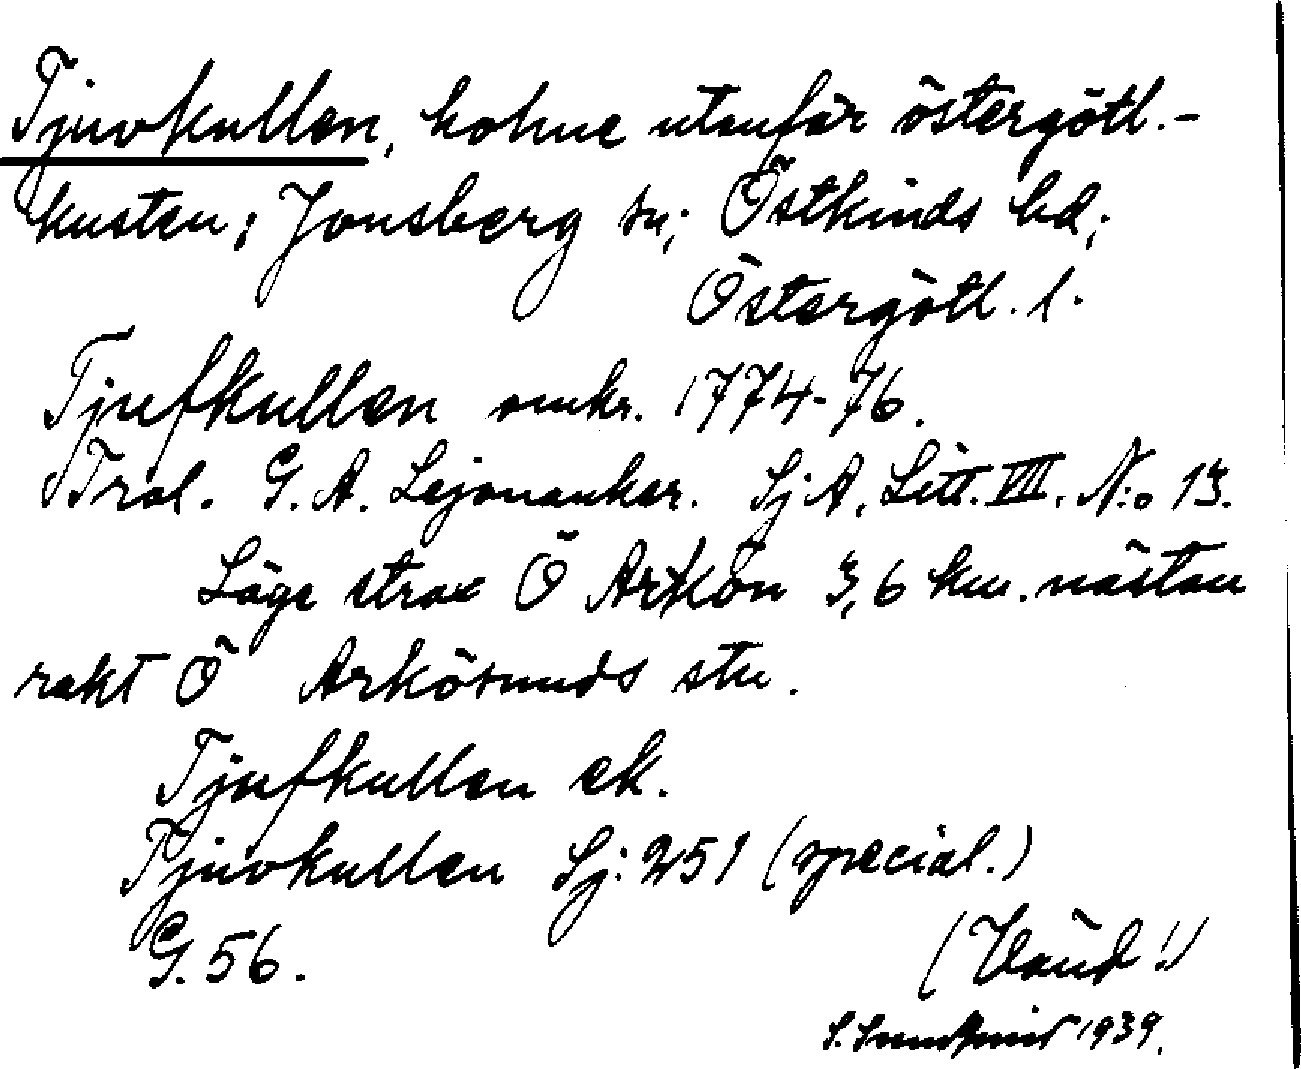 Tjuvkullen, holme utanför östergötl.-
kusten; Jonsberg sn; Östkinds hd;
Östergötl. l.
Tjufkullen omkr. 1774-76.
Trol. G. A. Lejonankar. Sj A, Litt. VIII. N:o 13.
Läge strax Ö Arkön 3,6 km. nästan
rakt Ö Arkösunds stn.
Tjufkullen ek.
Tjuvkullen Sj: 251 (special.)
G. 56.
(Vänd!)
S. 1939.